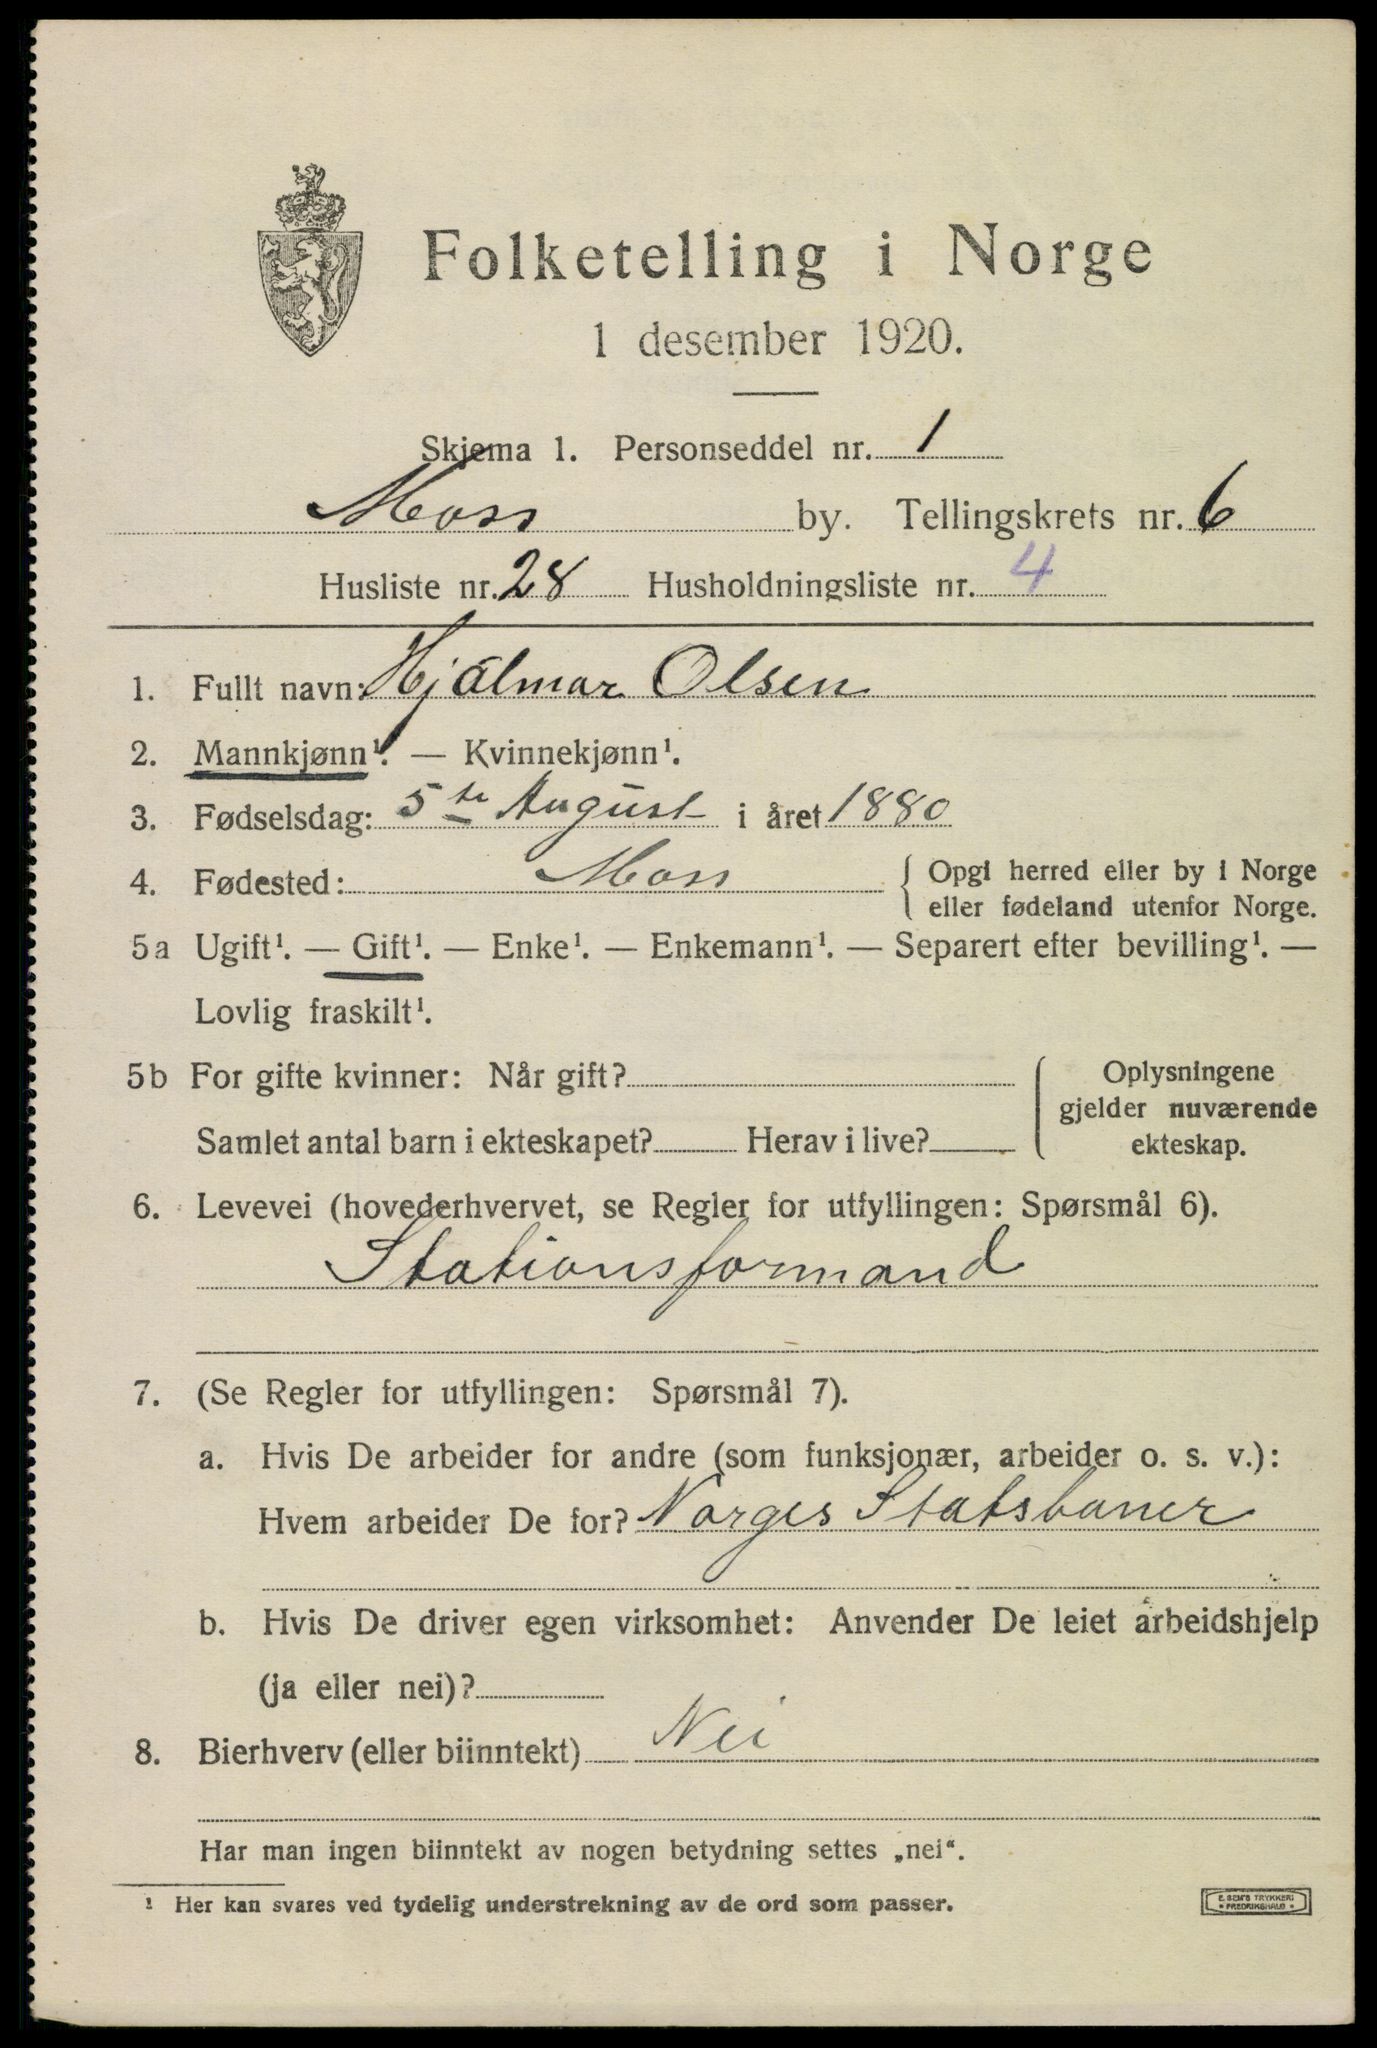 Folketelling i Norge
1 desember 1920.
Skjema 1. Personseddel nr. 1
Moss by. Tellingskrets nr. 6
Husliste nr. 28 Husholdningsliste nr. 4
1. Fullt navn: Hjalmar Olsen
2. Mannkjønn¹. — Kvinnekjønn¹.
3. Fødselsdag: 5te August i året 1880
4. Fødested: Moss { Opgi herred eller by i Norge
eller fødeland utenfor Norge.
5a Ugift¹. — Gift¹. — Enke¹. — Enkemann¹. — Separert efter bevilling¹. —
Lovlig fraskilt¹.
5b For gifte kvinner: Når gift? { Oplysningene
gjelder nuværende
Samlet antal barn i ekteskapet? Herav i live? ekteskap.
6. Levevei (hovederhvervet, se Regler for utfyllingen: Spørsmål 6).
Stationsformand
7. (Se Regler for utfyllingen: Spørsmål 7).
a. Hvis De arbeider for andre (som funksjonær, arbeider o. s. v.):
Hvem arbeider De for? Norges Statsbaner
b. Hvis De driver egen virksomhet: Anvender De leiet arbeidshjelp
(ja eller nei)?
8. Bierhverv (eller biinntekt) Nei
Har man ingen biinntekt av nogen betydning settes „nei“.
¹ Her kan svares ved tydelig understrekning av de ord som passer.
E. SEM'S TRYKKERI
• FREDRIKSHALD •